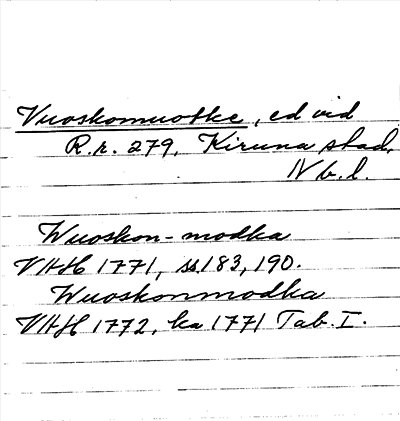 Vuoskomuotke, ed vid
R.r. 279, Kiruna stad,
N b. l.
Wuoskon-modka
VAH 1771, ss 183, 190.
Wuoskonmodka
VAH 1772, ka 1771 Tab. I.